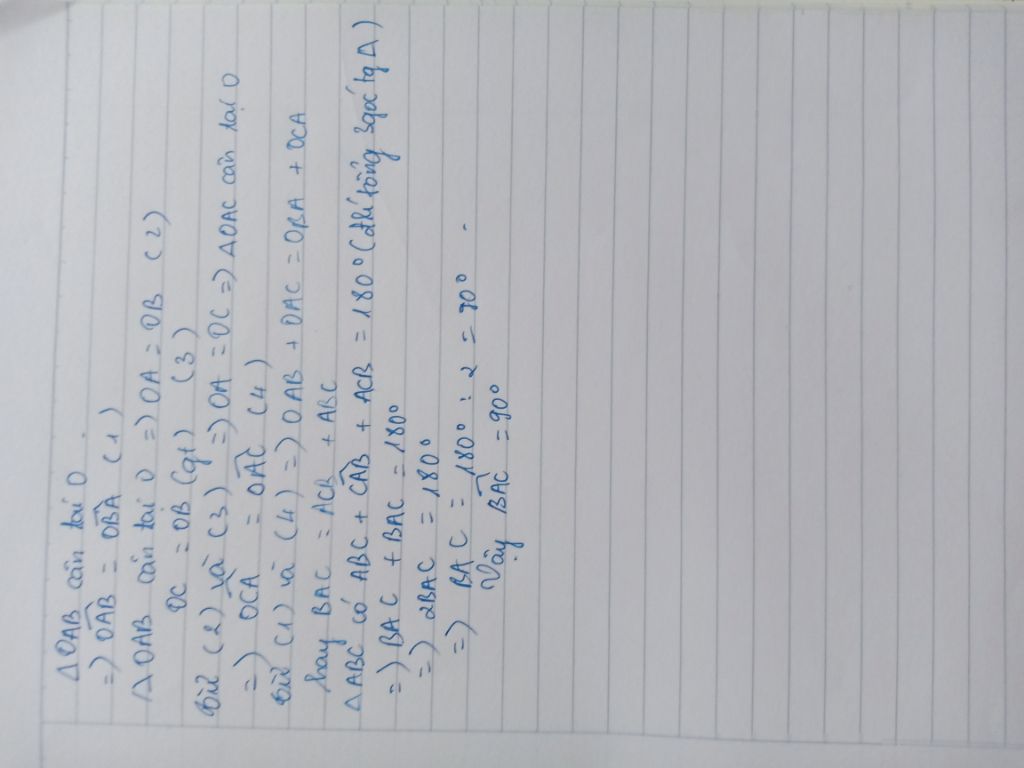 Δ OAB cân tại O
=) OAB = OBA (1)
Δ OAB cân tại O =) OA = OB (2)
OC = OB (gt) (3)
Từ (2) và (3) =) OA = OC =) Δ OAC cân tại O
=) OCA = OAC (4)
Từ (1) và (4) =) OAB + OAC = OBA + OCA
hay BAC = ACB + ABC
Δ ABC có ABC + CAB + ACB = 180° (đlí tổng 3 góc tg Δ)
=) BAC + BAC = 180°
=) 2BAC = 180°
=) BAC = 180° : 2 = 90°.
Vậy BAC = 90°